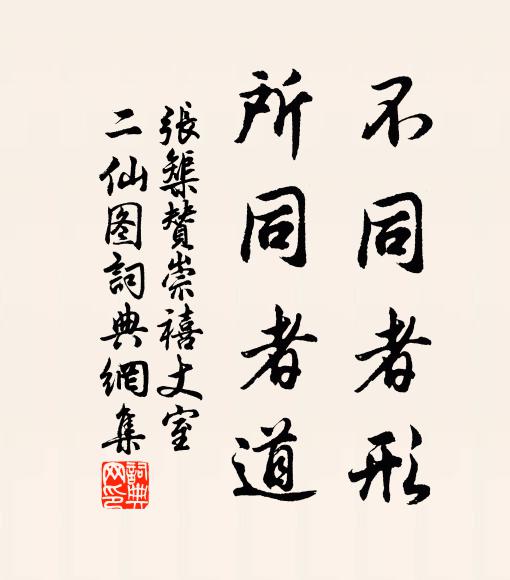 不同者形
所同者道
張榘贊崇禧丈室
二仙图詞典網集
詞典网印